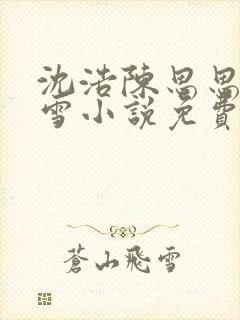 沈浩陳思思
雪小說免費
蒼山飛雪